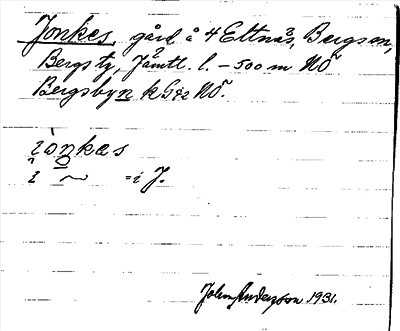 Jonkes, gård å 4 Eltnäs, Bergs sn,
Bergs tg, Jämtl. l. – 500 m NÖ
Bergsbyn k
ionkæs
i ~ = i J.
John Anderzon 1931.